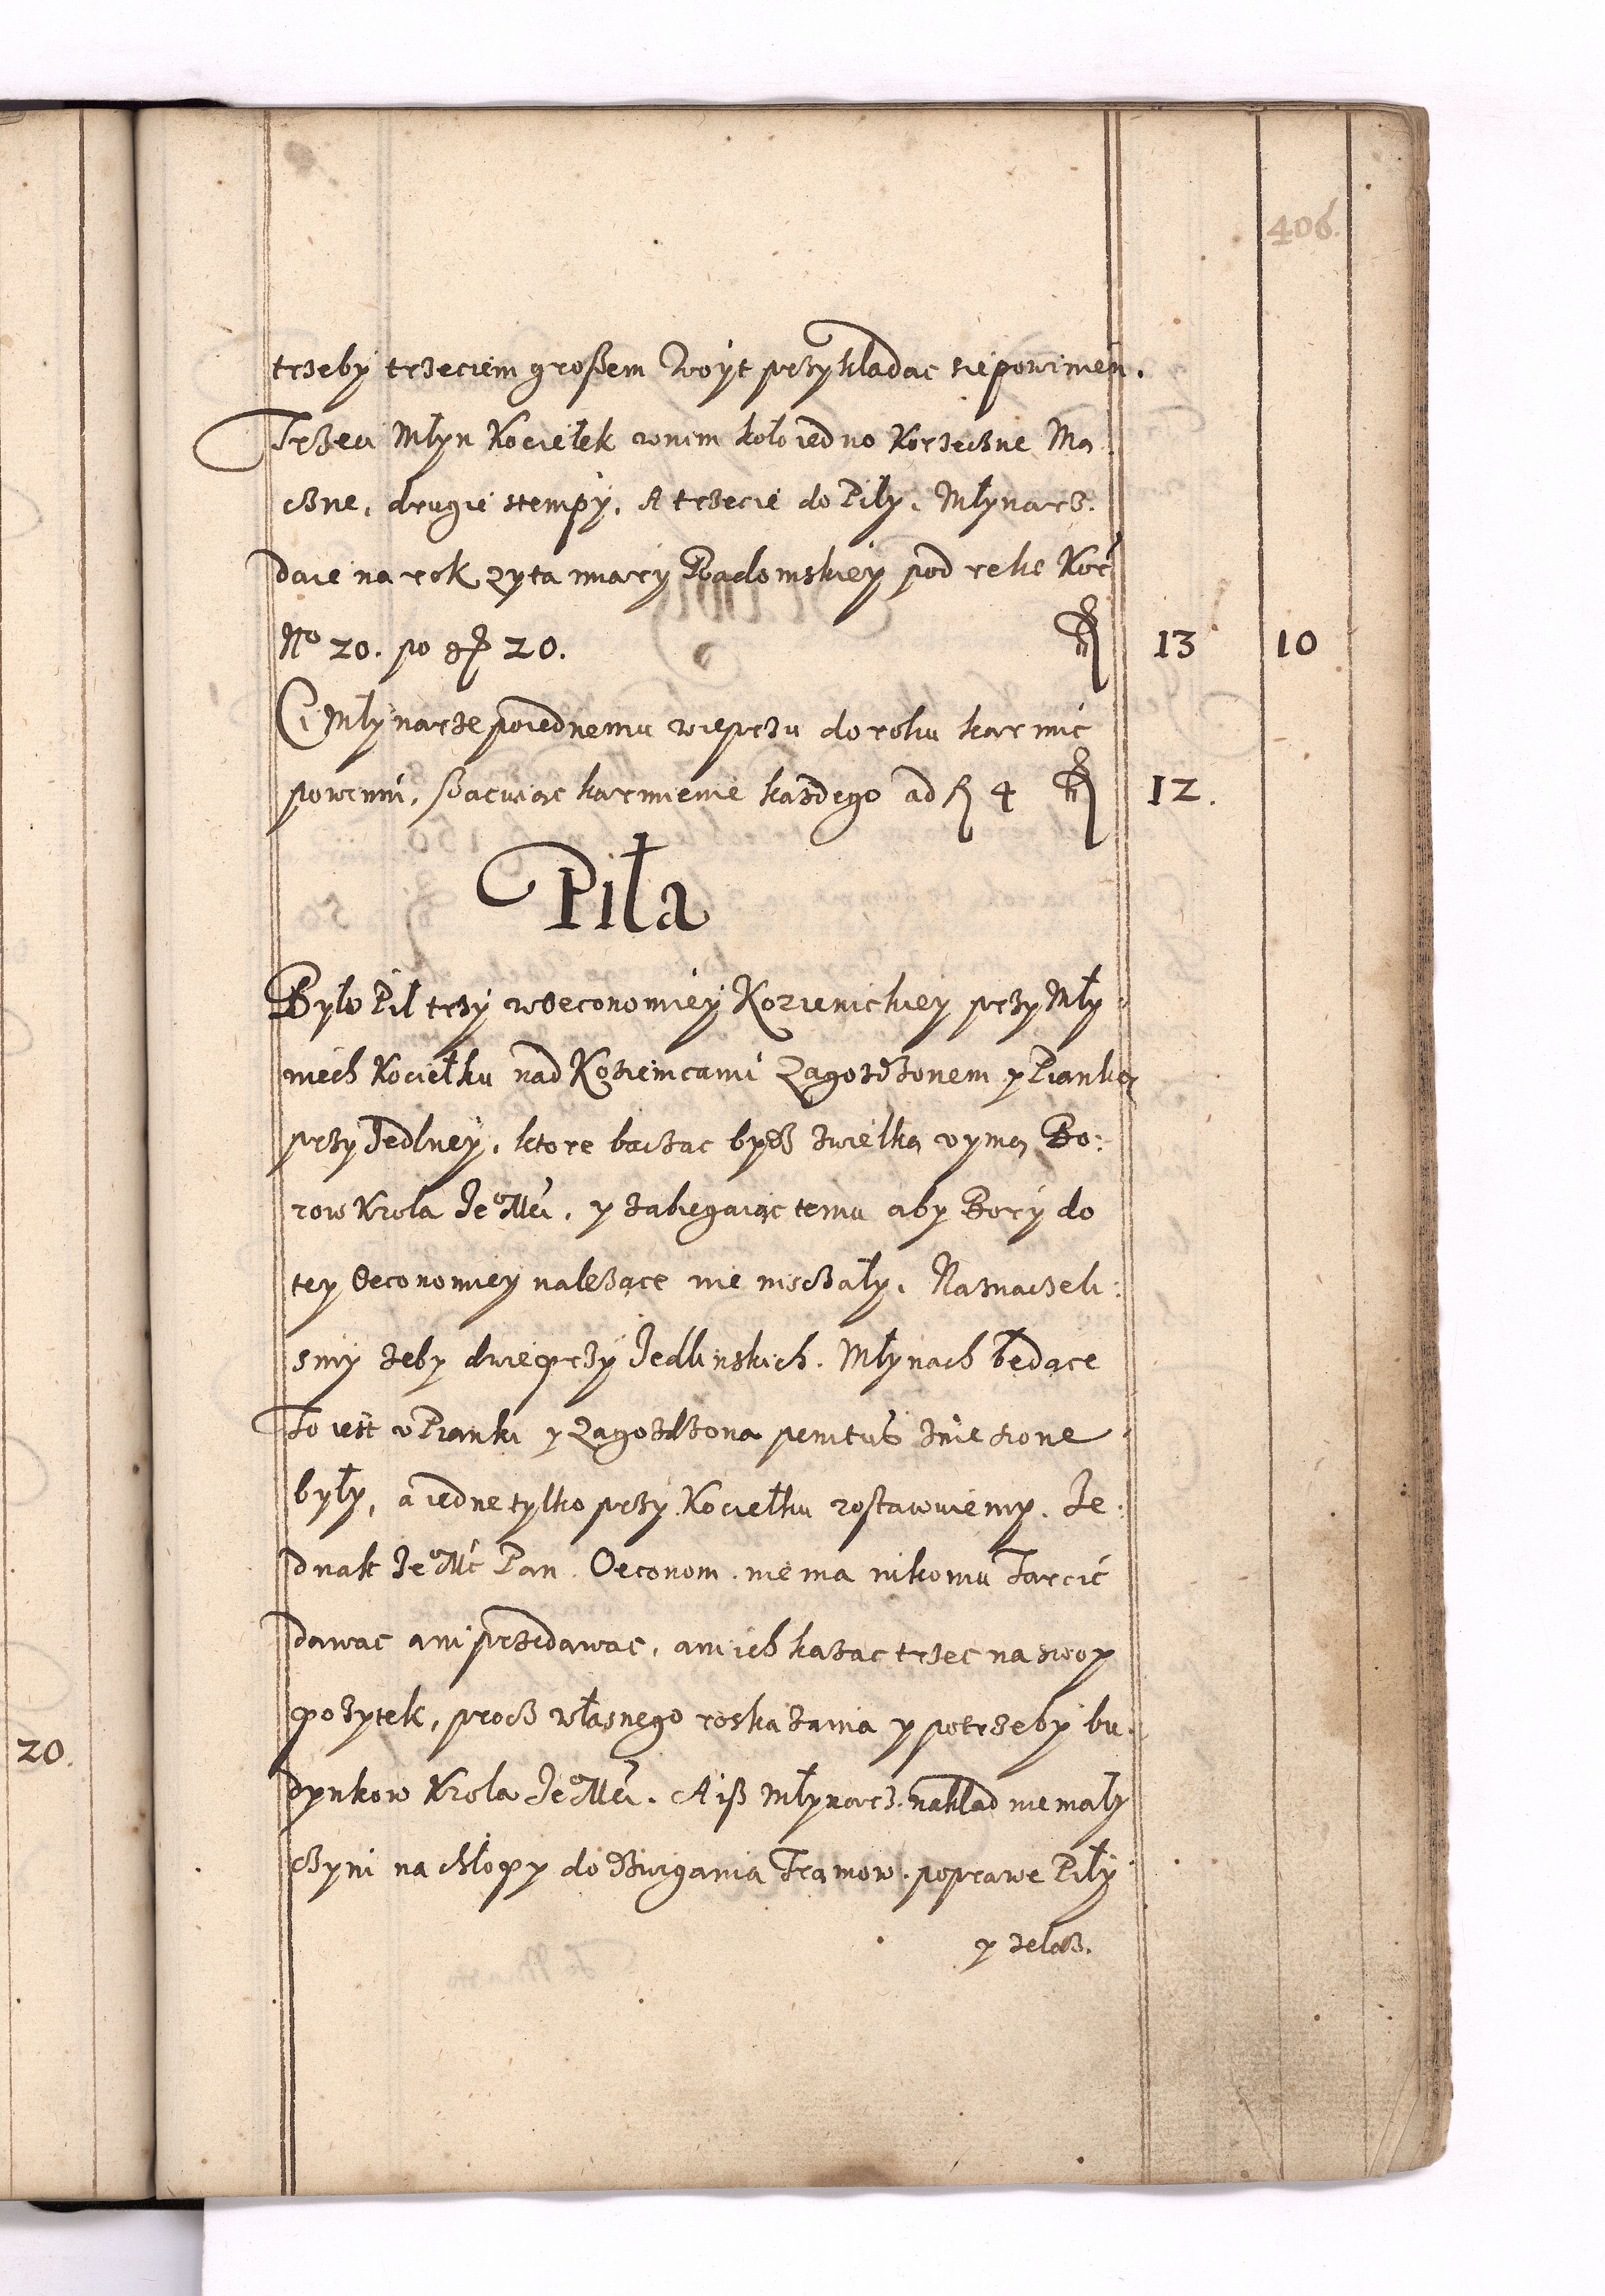 406.
trzeby trzeciem großem Woÿt przykladac sie powinien.
Trzeci Młyn Kociełek w nim koło iedno Korzeczne Ma
czne, drugie stempÿ, A trzecie do Piły, Młynarz.
daie na rok zyta miary Radomskiey pod reke Kor
No 20. po gr 20. 13 10
Ci Młynarze po iednemu wieprzu do roku karmic
powinni, szacuiąc karmienie każdego ad fl 4 12.
Piła
Było Pił trzy w Oeconomiey Kozienickiey przy Mły
niech Kociełku nad Kozienicami Zagozdzonem y Pianką
przy Jedlney, ktore bacząc bydz z wielką vymą Bo:
row Krola Je Mci, y zabiegaiąc temu aby Bory do
tey Oeconomiey nalezące nie niszczały, Naznaczeli
smy zeby dwie przy Jedlinskich Młynach będące
To iest v Pianki y Zagozdzona penitus zniesione
były, a iedne tylko przy Kociełku zostawuiemy. Je
dnak Je Mć Pan Oeconom nie ma nikomu Tarcic
dawac ani przedawac, ani ich kazac trzec na swoy
pozytek, procz własnego roskazania y potrzeby bu
dynkow Krola Je Mci. A iß Młynarz nakład niemały
czyni na chłopy do dzwigania Tramow, poprawe Piły
y zelaz.
20.